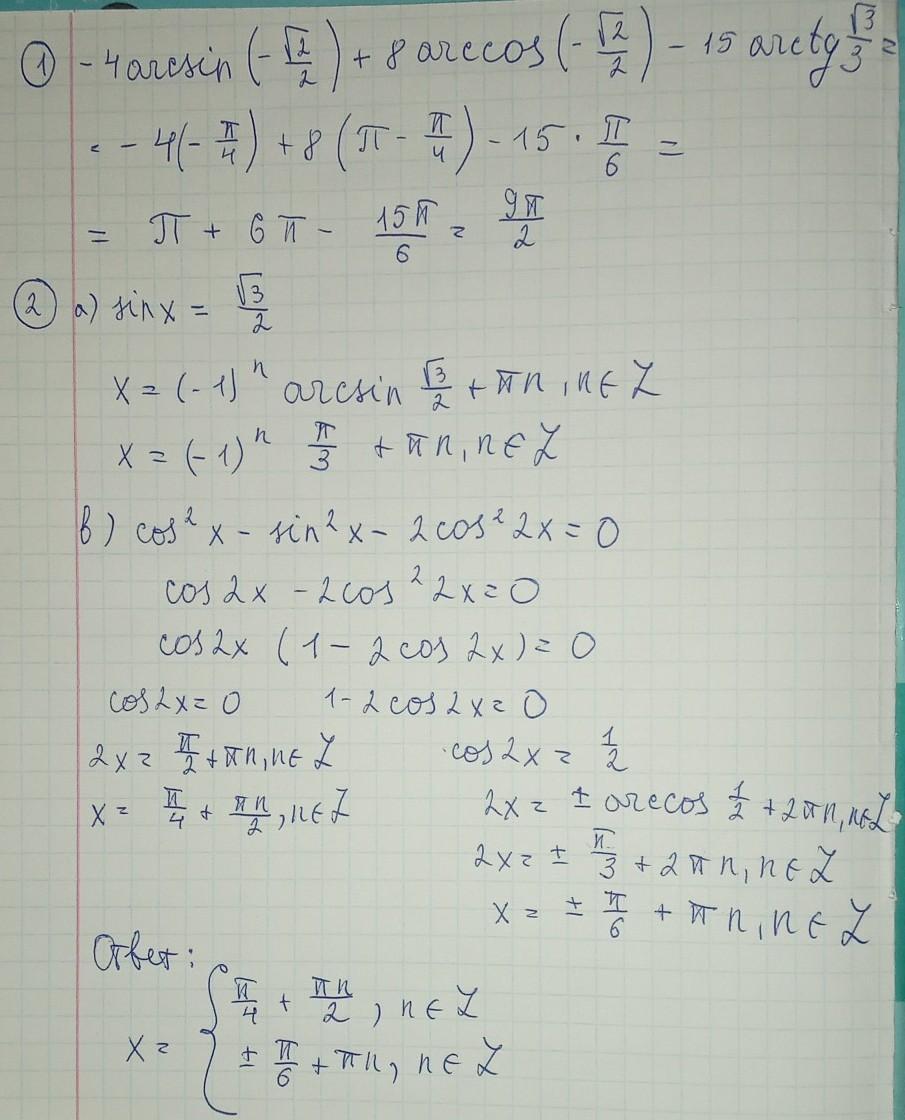 ① -4 arcsin (-√2/2) + 8 arccos (-√2/2) - 15 arctg √3/3 =
= -4(-π/4) + 8(π - π/4) - 15 · π/6 =
= π + 6π - 15π/6 = 9π/2
② a) sin x = √3/2
x = (-1)ⁿ arcsin √3/2 + πn, n ∈ Z
x = (-1)ⁿ π/3 + πn, n ∈ Z
в) cos² x - sin² x - 2cos² 2x = 0
cos 2x - 2cos² 2x = 0
cos 2x (1 - 2 cos 2x) = 0
cos 2x = 0 1 - 2 cos 2x = 0
2x = π/2 + πn, n ∈ Z cos 2x = 1/2
x = π/4 + πn/2, n ∈ Z 2x = ± arccos 1/2 + 2πn, n ∈ Z
2x = ± π/3 + 2πn, n ∈ Z
x = ± π/6 + πn, n ∈ Z
Ответ:
x = { π/4 + πn/2, n ∈ Z
± π/6 + πn, n ∈ Z